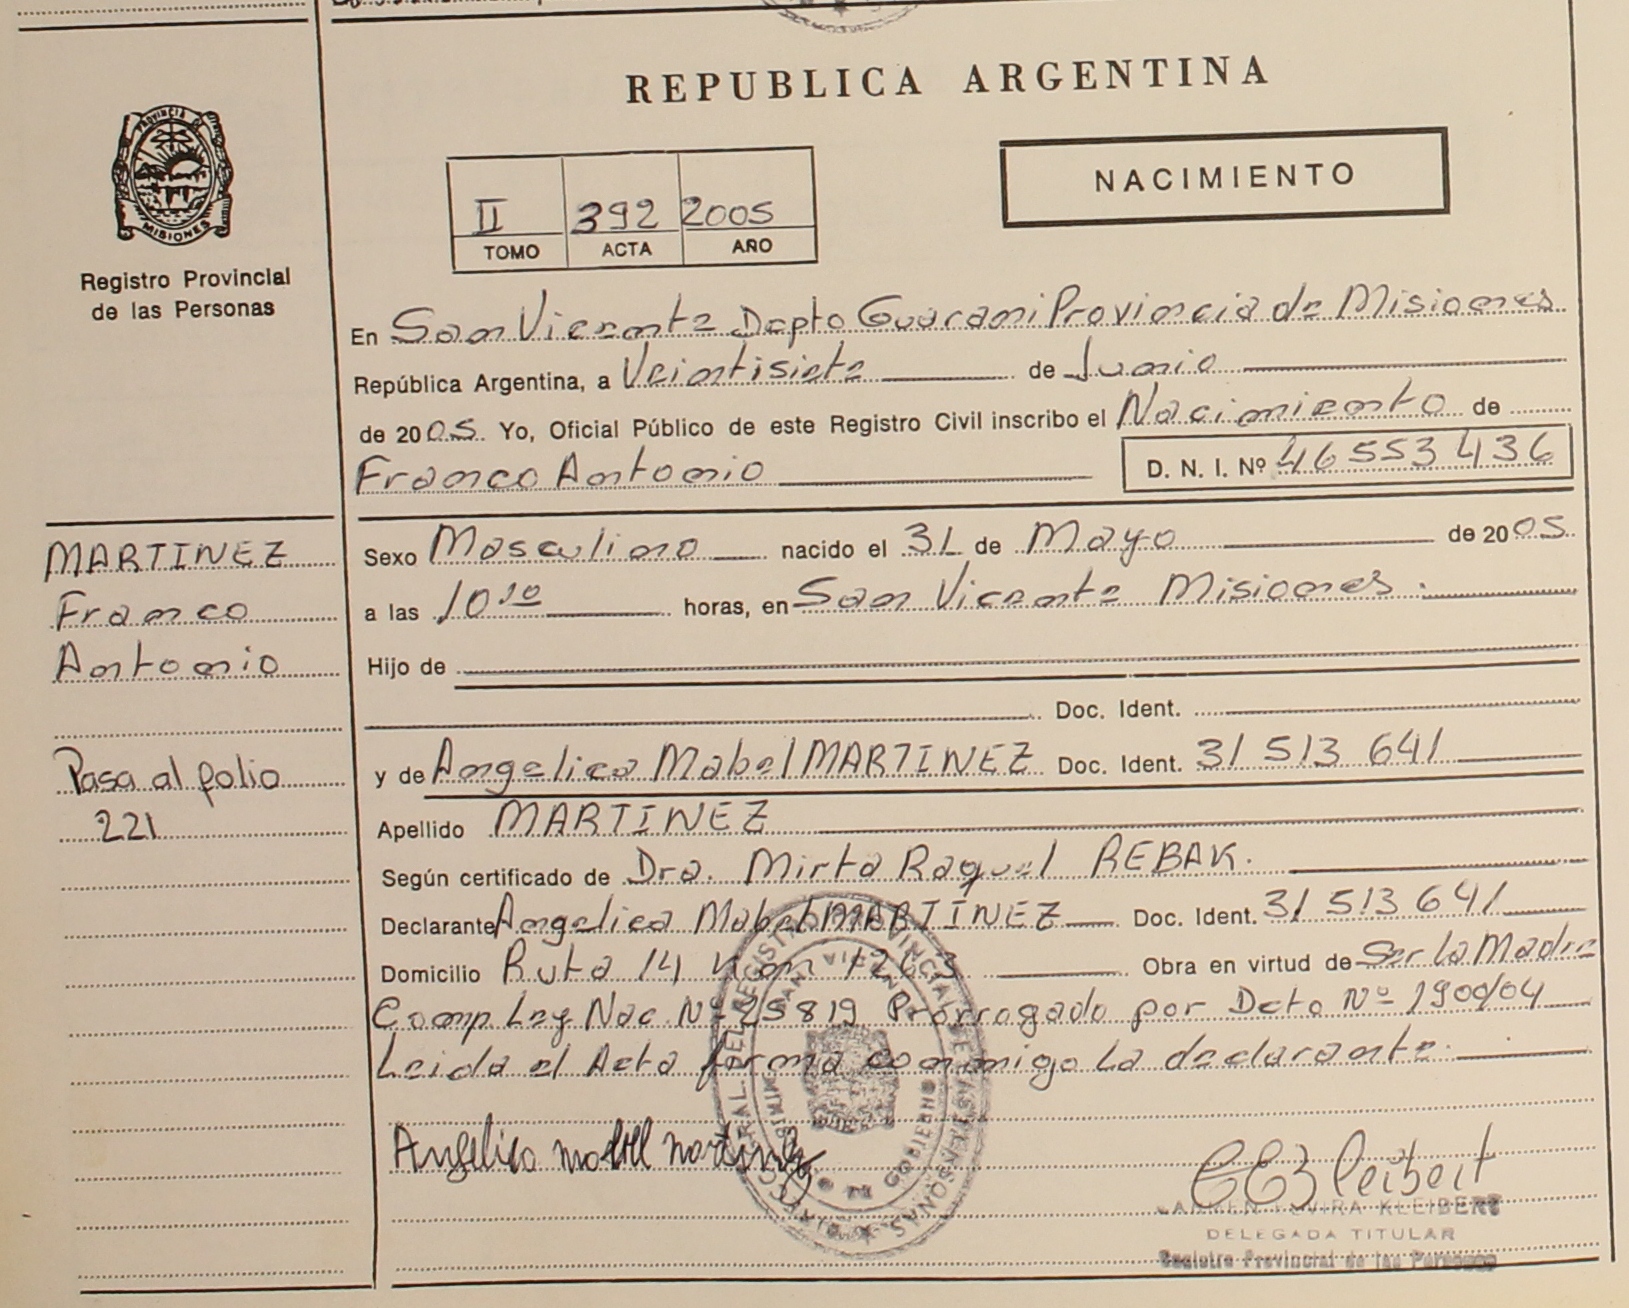 REPUBLICA ARGENTINA
PROVINCIA DE
MISIONES
Registro Provincial
de las Personas
NACIMIENTO
II 392 2005
TOMO ACTA AÑO
En San Vicente Depto Guarani Provincia de Misiones
República Argentina, a Veintisiete de Junio
de 2005. Yo, Oficial Público de este Registro Civil inscribo el Nacimiento de
Franco Antonio D. N. I. Nº 46 553 436
MARTINEZ
Franco
Antonio
Pasa al folio
221
Sexo Masculino nacido el 31 de Mayo de 2005.
a las 10 horas, en San Vicente Misiones.
Hijo de
Doc. Ident.
y de Angelica Mabel MARTINEZ Doc. Ident. 31 513 641
Apellido MARTINEZ
Según certificado de Dra. Mirta Raquel REBAK.
Declarante Angelica Mabel MARTINEZ Doc. Ident. 31 513 641
Domicilio Ruta 14 Obra en virtud de Ser la Madre
Comp Ley Nac. Nº 25819 Prorrogado por Dcto Nº 1900/04
Leida el Acta firma conmigo la declarante.
Angelica mabel martinez
KLEIBERT
DELEGADA TITULAR
Registro Provincial de las Personas